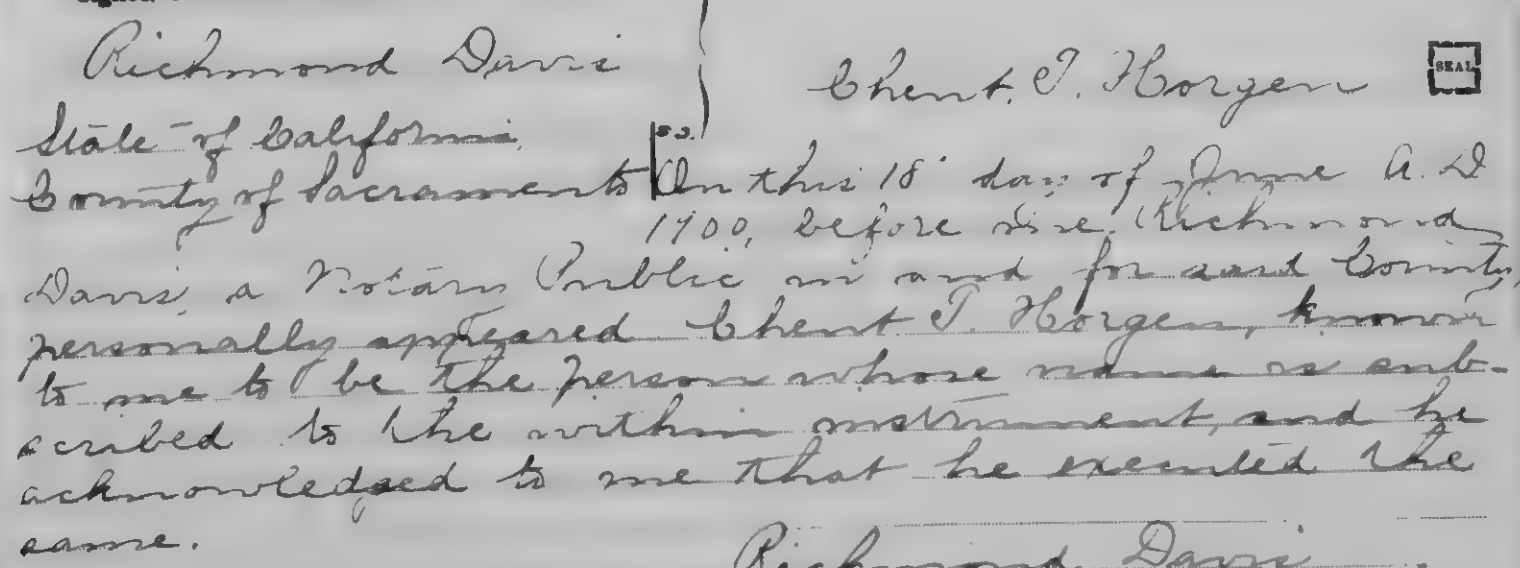 Richmond Davis
Chent. T. Horgen
SEAL
State of California
County of Sacramento
s s.
On this 18 day of June A. D
1900, before me, Richmond
Davis, a Notary Public in and for said County,
personally appeared Chent T. Horgen, known
to me to be the person whose name is sub-
scribed to the within instrument, and he
acknowledged to me that he executed the
same.
Richmond Davis